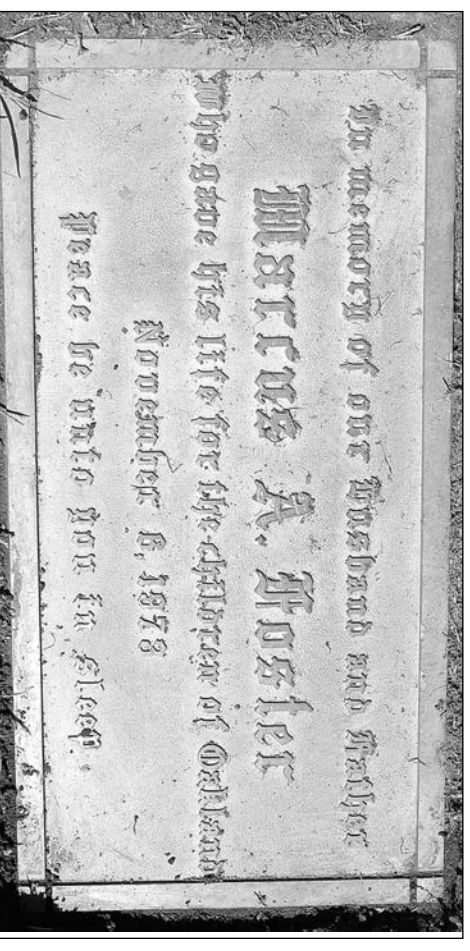 In memory of our Husband and Father
Marcus A. Foster
Who gave his life for the children of Oakland
November 6, 1973
Peace be unto you in sleep.